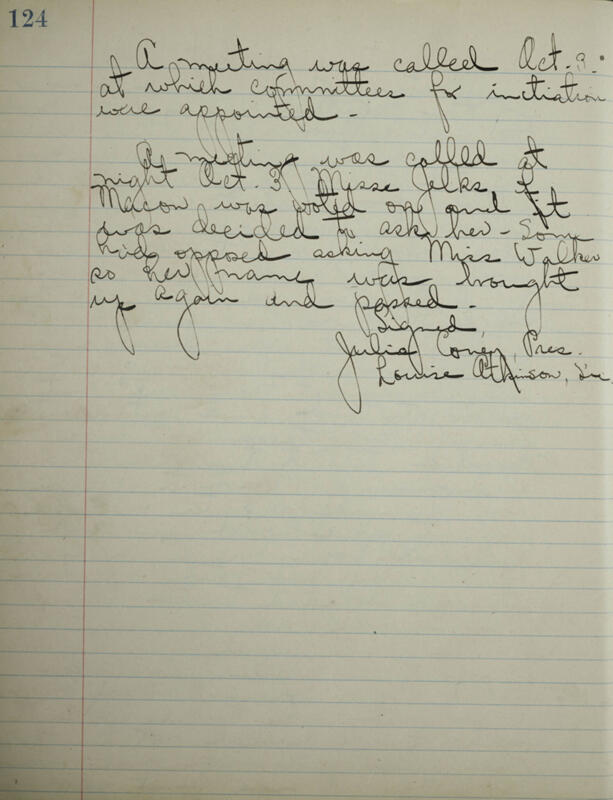 124
A meeting was called Oct. 3.
at which committees for initiation
were appointed -
A meeting was called at
night Oct. 3. Misse Jelks, of
Macon was voted on and it
was decided to ask her - Some
had opposed asking Miss Walker
so her name was brought
up again and passed.
Signed,
Julia Coney, Pres.
Louise Atkinson,